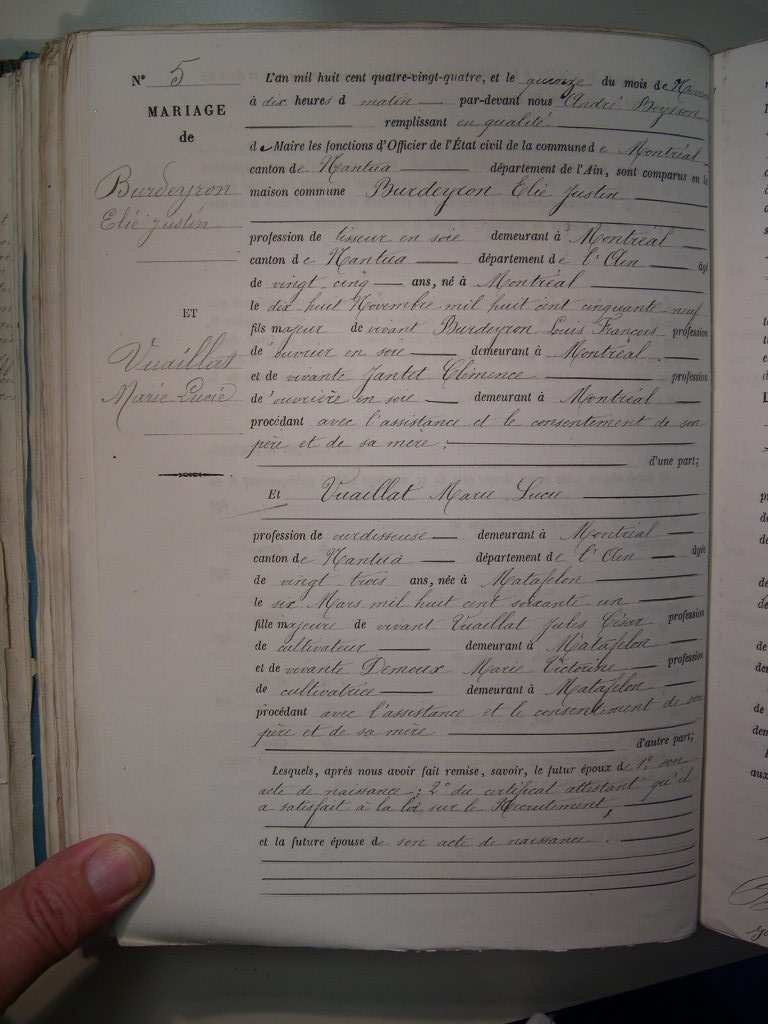 N° 5
MARIAGE
de
Burdeyron
Elie Justin
ET
Vuaillat
Marie Lucie
L'an mil huit cent quatre-vingt-quatre, et le quinze du mois de
à dix heures d matin par-devant nous André
remplissant en qualité
de Maire les fonctions d'Officier de l'État civil de la commune de Montréal
canton de Nantua département de l'Ain, sont comparus en la
maison commune Burdeyron Elie Justin
profession de tisseur en soie demeurant à Montréal
canton de Nantua département de l'Ain âgé
de vingt cinq ans, né à Montréal
le dix huit Novembre mil huit cent cinquante neuf
fils majeur de vivant Burdeyron Louis François profession
de ouvrier en soie demeurant à Montréal.
et de vivante Jantet Clémence profession
de ouvrière en soie demeurant à Montréal
procédant avec l'assistance et le consentement de son
père et de sa mère ;
d'une part;
Et Vuaillat Marie Lucie
profession de ourdisseuse demeurant à Montréal
canton de Nantua département de l'Ain âgée
de vingt trois ans, née à Matafelon
le six Mars mil huit cent soixante un
fille majeure de vivant Vuaillat Jules César profession
de cultivateur demeurant à Matafelon
et de vivante Demoux Marie Victorine profession
de cultivatrice demeurant à Matafelon
procédant avec l'assistance et le consentement de son
père et de sa mère
d'autre part;
Lesquels, après nous avoir fait remise, savoir, le futur époux de 1° son
acte de naissance ; 2° du certificat attestant qu'il
a satisfait à la loi sur le Recrutement,
et la future épouse de son acte de naissance.